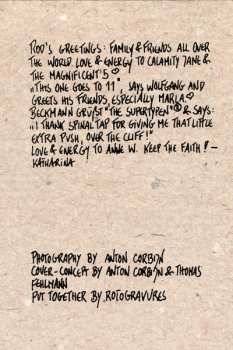 ROD'S GREETINGS: FAMILY & FRIENDS ALL OVER
THE WORLD. LOVE & ENERGY TO CALAMITY JANE &
THE MAGNIFICENT 5 ♡
„THIS ONE GOES TO 11", SAYS WOLFGANG AND
GREETS HIS FRIENDS, ESPECIALLY MARLA. ♡
BECKMANN GRÜSST "THE SUPERTYPEN"® & SAYS:
„I THANK SPINAL TAP FOR GIVING ME THAT LITTLE
EXTRA PUSH, OVER THE CLIFF!"
LOVE & ENERGY TO ANNE W. KEEP THE FAITH! –
KATHARINA
PHOTOGRAPHY BY ANTON CORBIJN
COVER-CONCEPT BY ANTON CORBIJN & THOMAS
FEHLMANN
PUT TOGETHER BY ROTOGRAVURES